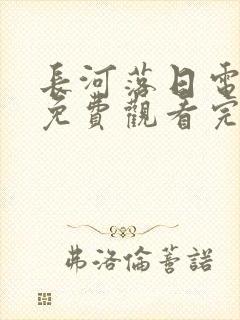 長河落日電
免費觀看完
弗洛倫蒈諾